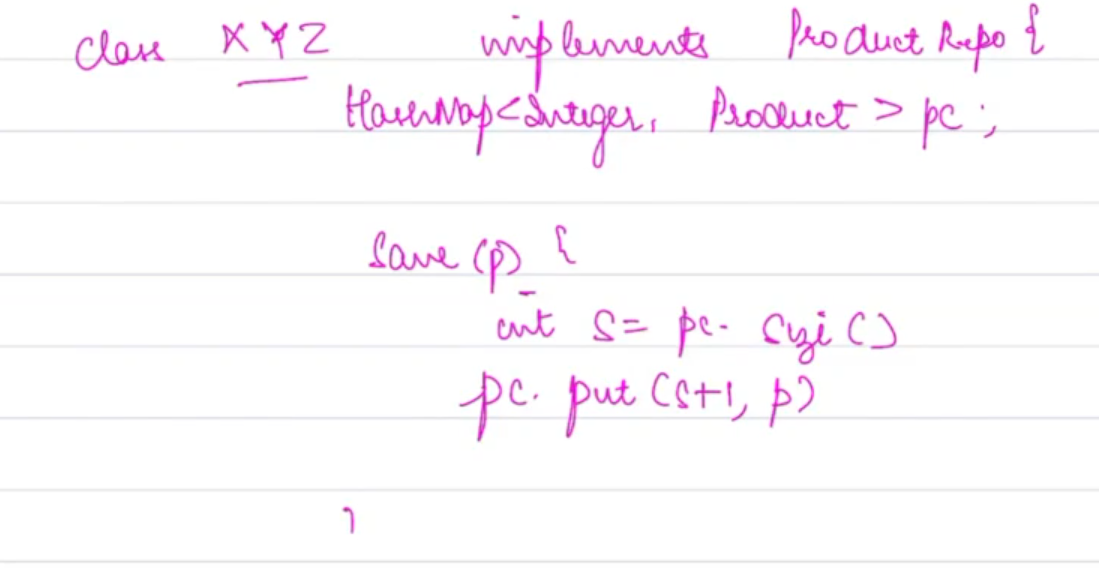 class XYZ implements ProductRepo {
HashMap<Integer, Product> pc;
Save (p) {
int s = pc. size ()
pc. put (s+1, p)
}